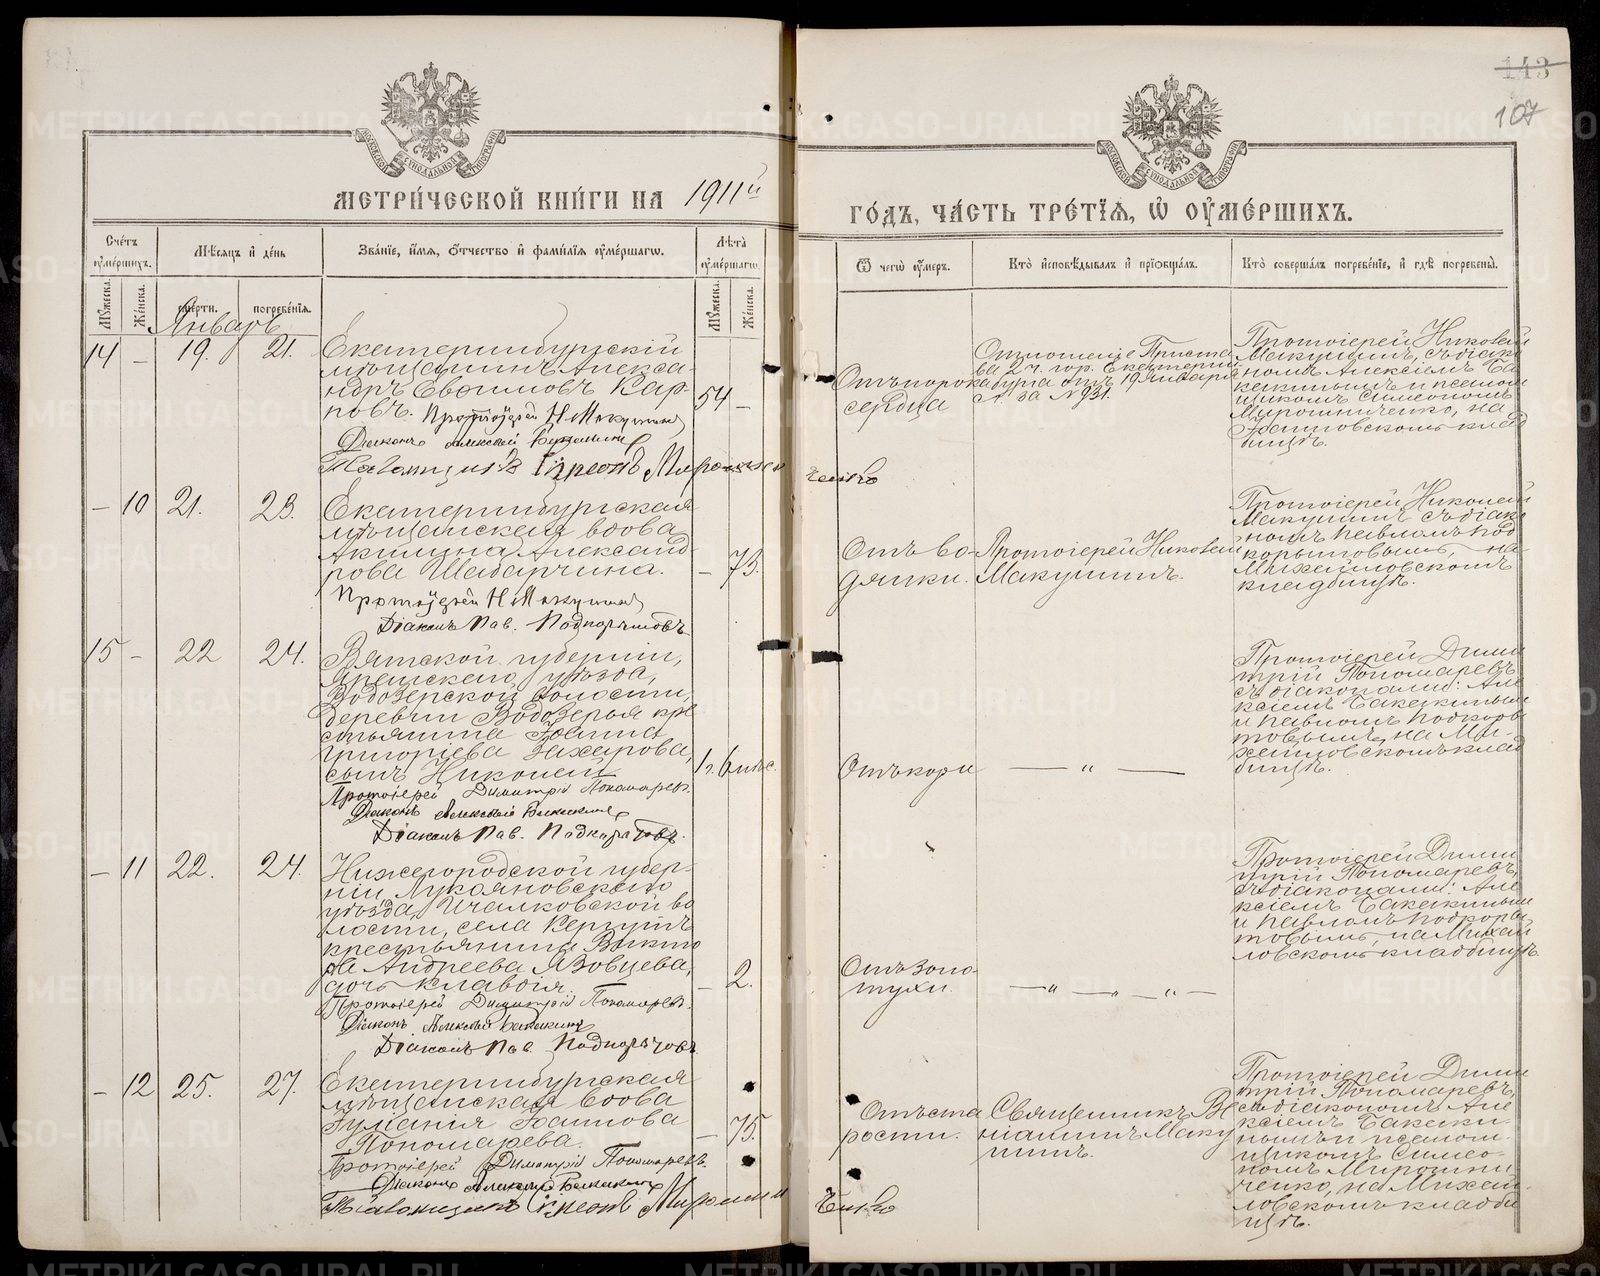 143
107
МОСКОВСКОЙ СѴНОДАЛЬНОЙ ТИПОГРАФІИ
МОСКОВСКОЙ СѴНОДАЛЬНОЙ ТИПОГРАФІИ
МЕТРИ́ЧЕСКОЙ КНИ́ГИ НА 1911й
ГО́ДЪ, ЧА́СТЬ ТРЕ́ТЇѦ, Ѡ҆ ОУ҆МЕ́РШИХЪ.
Сче́тъ оу҆ме́ршихъ.
Мѣ́сяцъ и҆ де́нь
Зва́нїе, и҆́мѧ, ѻ҆́тчество и҆ фами́лїѧ оу҆ме́ршагѡ.
Лѣ́та оу҆ме́ршагѡ
Ѿ чегѡ̀ оу҆́меръ.
Кто̀ и҆сповѣ́дывалъ и҆ прїѡбща́лъ.
Кто̀ соверша́лъ погребе́нїе, и҆ гдѣ̀ погребены̀.
Мꙋ́жеска.
Же́нска.
сме́рти.
погребе́нїѧ.
Мꙋ́жеска.
Же́нска.
Январь
14 – 19. 21.
Екатеринбургскій
мѣщанинъ Алекса-
ндръ Евѳимовъ Кар-
повъ. Протоіерей Н. Макушинъ
Діаконъ Алексій Бакакинъ
Псаломщикъ Симеонъ Мирошни
ченко
54 –
Отъ порока
сердца
Отношеніе Приста
ва 2 ч. гор. Екатерин
бурга отъ 19 Января
с. г. за № 931.
Протоіерей Николай
Макушинъ, съ діако
номъ Алексіемъ Ба
какинымъ и псалом
щикомъ Симеономъ
Мирошниченко, на
Іоанновскомъ клад
бищѣ.
– 10 21. 23.
Екатеринбургская
мѣщанская вдова
Акилина Александ-
рова Шабарчина.
Протоіерей Н. Макушинъ
Діаконъ Пав. Подкорытовъ
– 73.
Отъ во-
дянки.
Протоіерей Николай
Макушинъ.
Протоіерей Николай
Макушинъ съ діако
номъ Павломъ Под
корытовымъ, на
Михайловскомъ
кладбищѣ.
15 – 22 24.
Вятской губерніи,
Яренскаго уѣзда,
Водозерской волости,
деревни Водозерья кре
стьянина Іоанна
Григоріева Захарова,
сынъ Николай
Протоіерей Димитрій Пономаревъ.
Діаконъ Алексій Бакакинъ
Діаконъ Пав. Подкорытовъ.
1 г. 6 мѣс.
Отъ кори
— „ —
Протоіерей Дими
трій Пономаревъ
съ діаконами: Але
ксіемъ Бакакинымъ
и Павломъ Подкоры
товымъ, на Ми-
хайловскомъ клад
бищѣ.
– 11 22. 24.
Нижегородской губер-
ніи, Лукояновскаго
уѣзда, Ичалковской во
лости, села Кергудъ
крестьянина Викто
ра Андреева Язовцева,
дочь Клавдія.
Протоіерей Димитрій Пономаревъ.
Діаконъ Алексій Бакакинъ
Діаконъ Пав. Подкорытовъ
– 2.
Отъ золо-
тухи.
— „ — „ —
Протоіерей Дими
трій Пономаревъ,
съ діаконами: Але
ксіемъ Бакакинымъ
и Павломъ Подкоры
товымъ, на Михай
ловскомъ кладбищѣ.
– 12 25. 27.
Екатеринбургская
мѣщанская вдова
Іуліанія Іоаннова
Пономарева.
Протоіерей Димитрій Пономаревъ.
Діаконъ Алексій Бакакинъ
Псаломщикъ Симеонъ Мирошни
ченко
– 75.
Отъ ста
рости.
Священникъ Ве
ніаминъ Маку
шинъ.
Протоіерей Дими
трій Пономаревъ,
съ діакономъ Але
ксіемъ Бакаки-
нымъ и псалом-
щикомъ Симео-
номъ Мирошни
ченко, на Михай
ловскомъ кладби
щѣ.